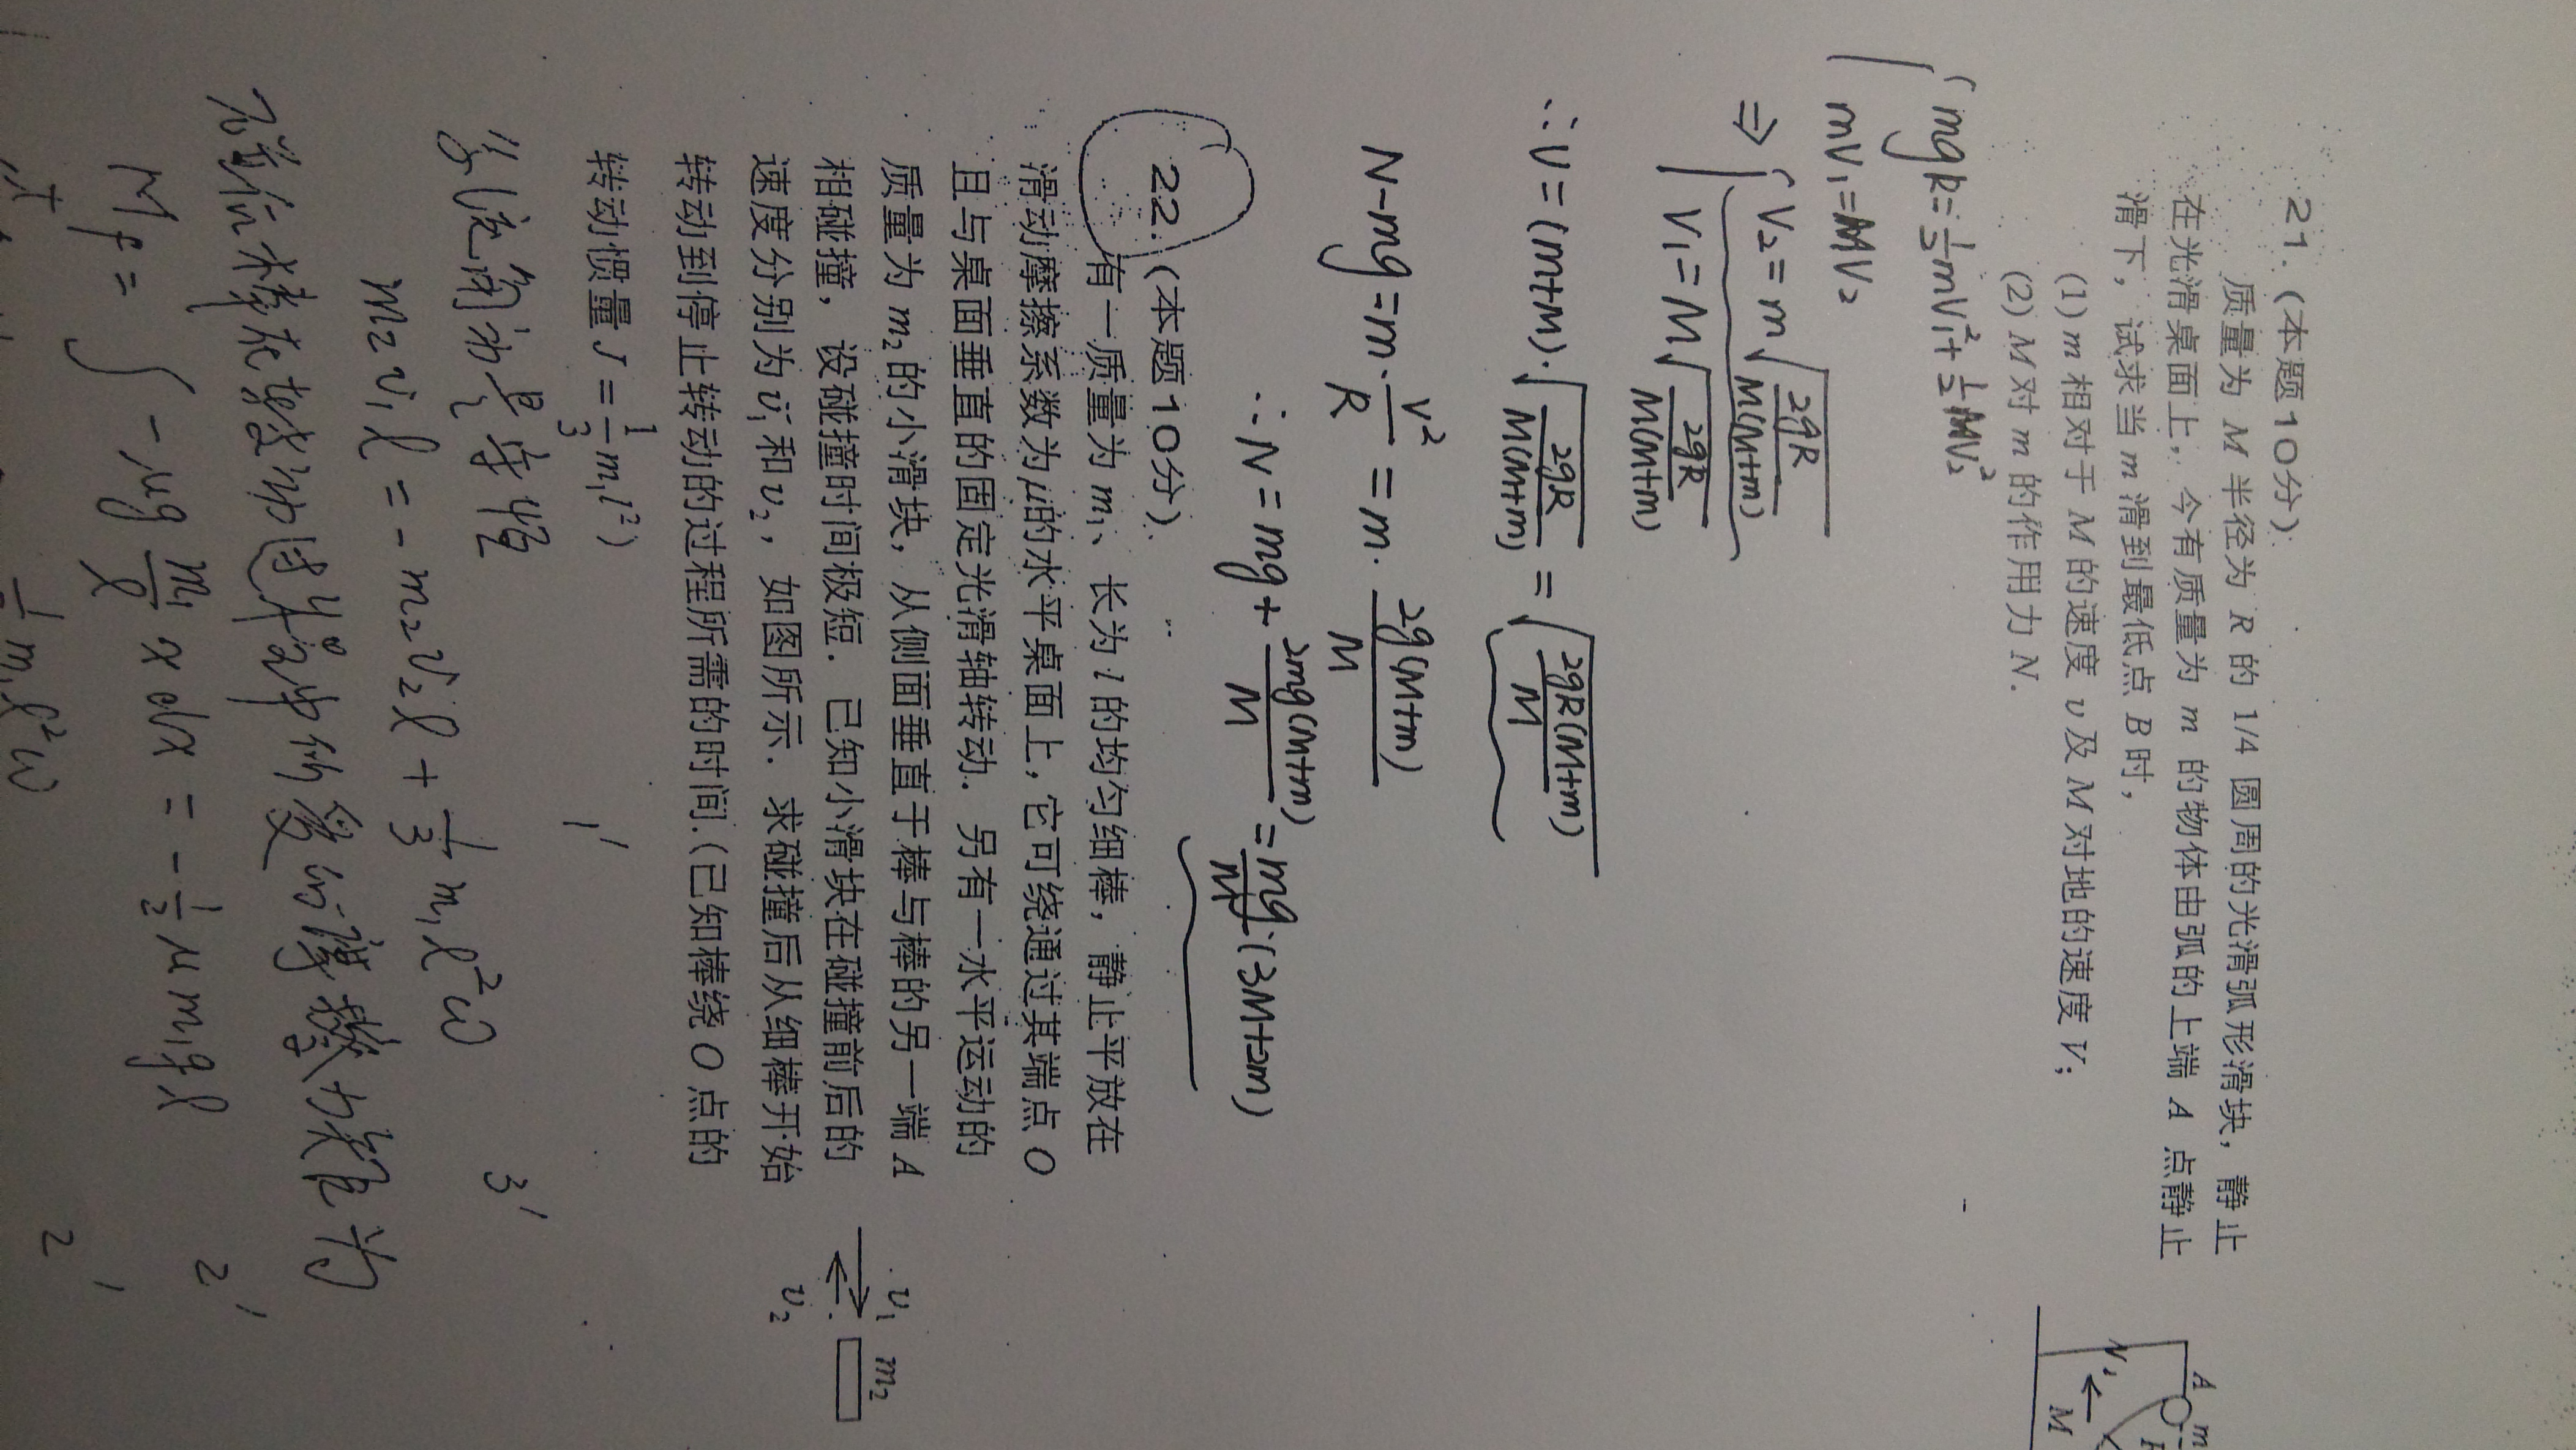 21.(本题10分)
质量为 M 半径为 R 的 1/4 圆周的光滑弧形滑块,静止
在光滑桌面上,今有质量为 m 的物体由弧的上端 A 点静止
滑下,试求当 m 滑到最低点 B 时,
(1) m 相对于 M 的速度 υ 及 M 对地的速度 V;
(2) M 对 m 的作用力 N.
A
m
M
mgR=½mV₁²+½MV₂²
mV₁=MV₂
⇒ V₂=m√(2gR/M(M+m))
V₁=M√(2gR/M(M+m))
∴V=(m+M)·√(2gR/M(M+m))=√(2gR(M+m)/M)
N-mg=m·V²/R=m·2g(M+m)/M
∴N=mg+2mg(M+m)/M=mg/M·(3M+2m)
22.(本题10分)
有一质量为 m₁、长为 l 的均匀细棒,静止平放在
滑动摩擦系数为μ的水平桌面上,它可绕通过其端点 O
且与桌面垂直的固定光滑轴转动.另有一水平运动的
质量为 m₂ 的小滑块,从侧面垂直于棒与棒的另一端 A
相碰撞,设碰撞时间极短.已知小滑块在碰撞前后的
速度分别为 υ₁ 和 υ₂,如图所示.求碰撞后从细棒开始
转动到停止转动的过程所需的时间.(已知棒绕 O 点的
转动惯量 J=1/3 m₁l²)
υ₁
m₂
υ₂
1'
系统角动量守恒
3'
m₂υ₁l=-m₂υ₂l+1/3 m₁l²ω
碰后棒在转动过程中所受的摩擦力矩为
M_f=∫-μg m₁/l x dx=-½μm₁gl
2'
2'